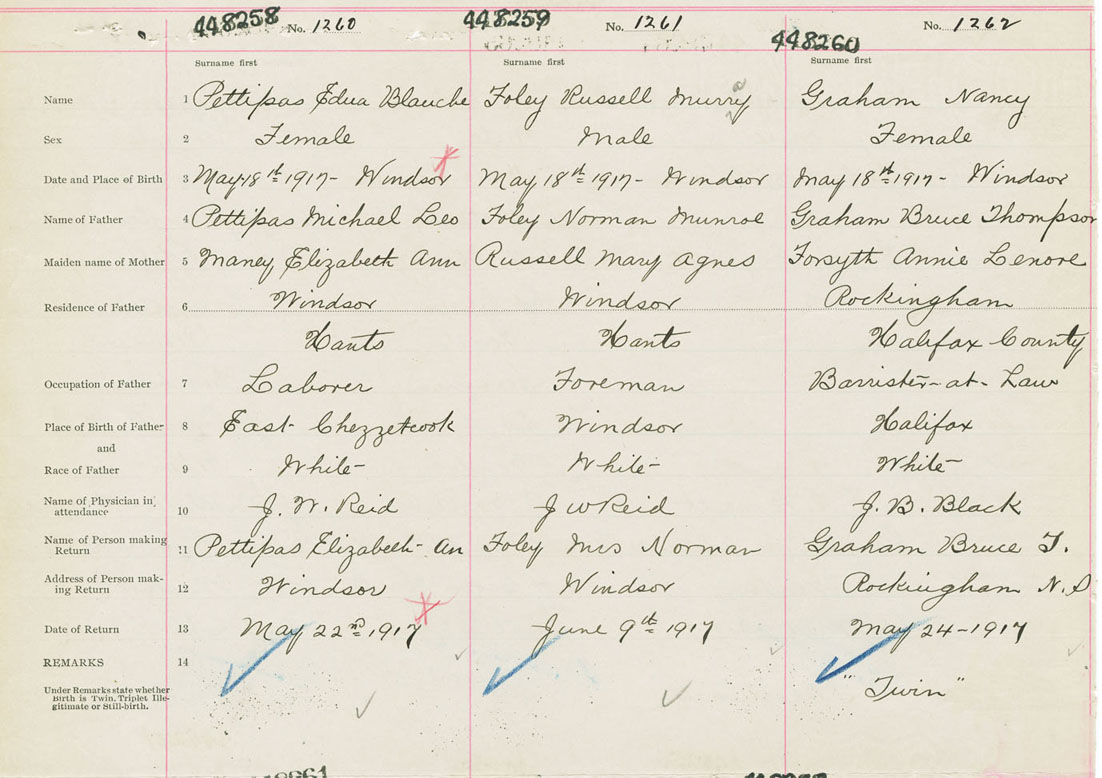 448258 No. 1260 448259 No. 1261 448260 No. 1262
Surname first Surname first Surname first
Name 1 Pettipas Edna Blanche Foley Russell Murry Graham Nancy
Sex 2 Female Male Female
Date and Place of Birth 3 May 18th 1917 - Windsor May 18th 1917 - Windsor May 18th 1917 - Windsor
Name of Father 4 Pettipas Michael Leo Foley Norman Munroe Graham Bruce Thompson
Maiden name of Mother 5 Maney Elizabeth Ann Russell Mary Agnes Forsyth Annie Lenore
Residence of Father 6 Windsor Windsor Rockingham
Hants Hants Halifax County
Occupation of Father 7 Laborer Foreman Barrister-at-Law
Place of Birth of Father 8 East Chezzetcook Windsor Halifax
and
Race of Father 9 White White White
Name of Physician in attendance 10 J. W. Reid J W Reid J. B. Black
Name of Person making Return 11 Pettipas Elizabeth An Foley Mrs Norman Graham Bruce T.
Address of Person making Return 12 Windsor Windsor Rockingham N.S
Date of Return 13 May 22nd 1917 June 9th 1917 May 24-1917
REMARKS 14
Under Remarks state whether
Birth is Twin, Triplet Ille-
gitimate or Still-birth.
"Twin"